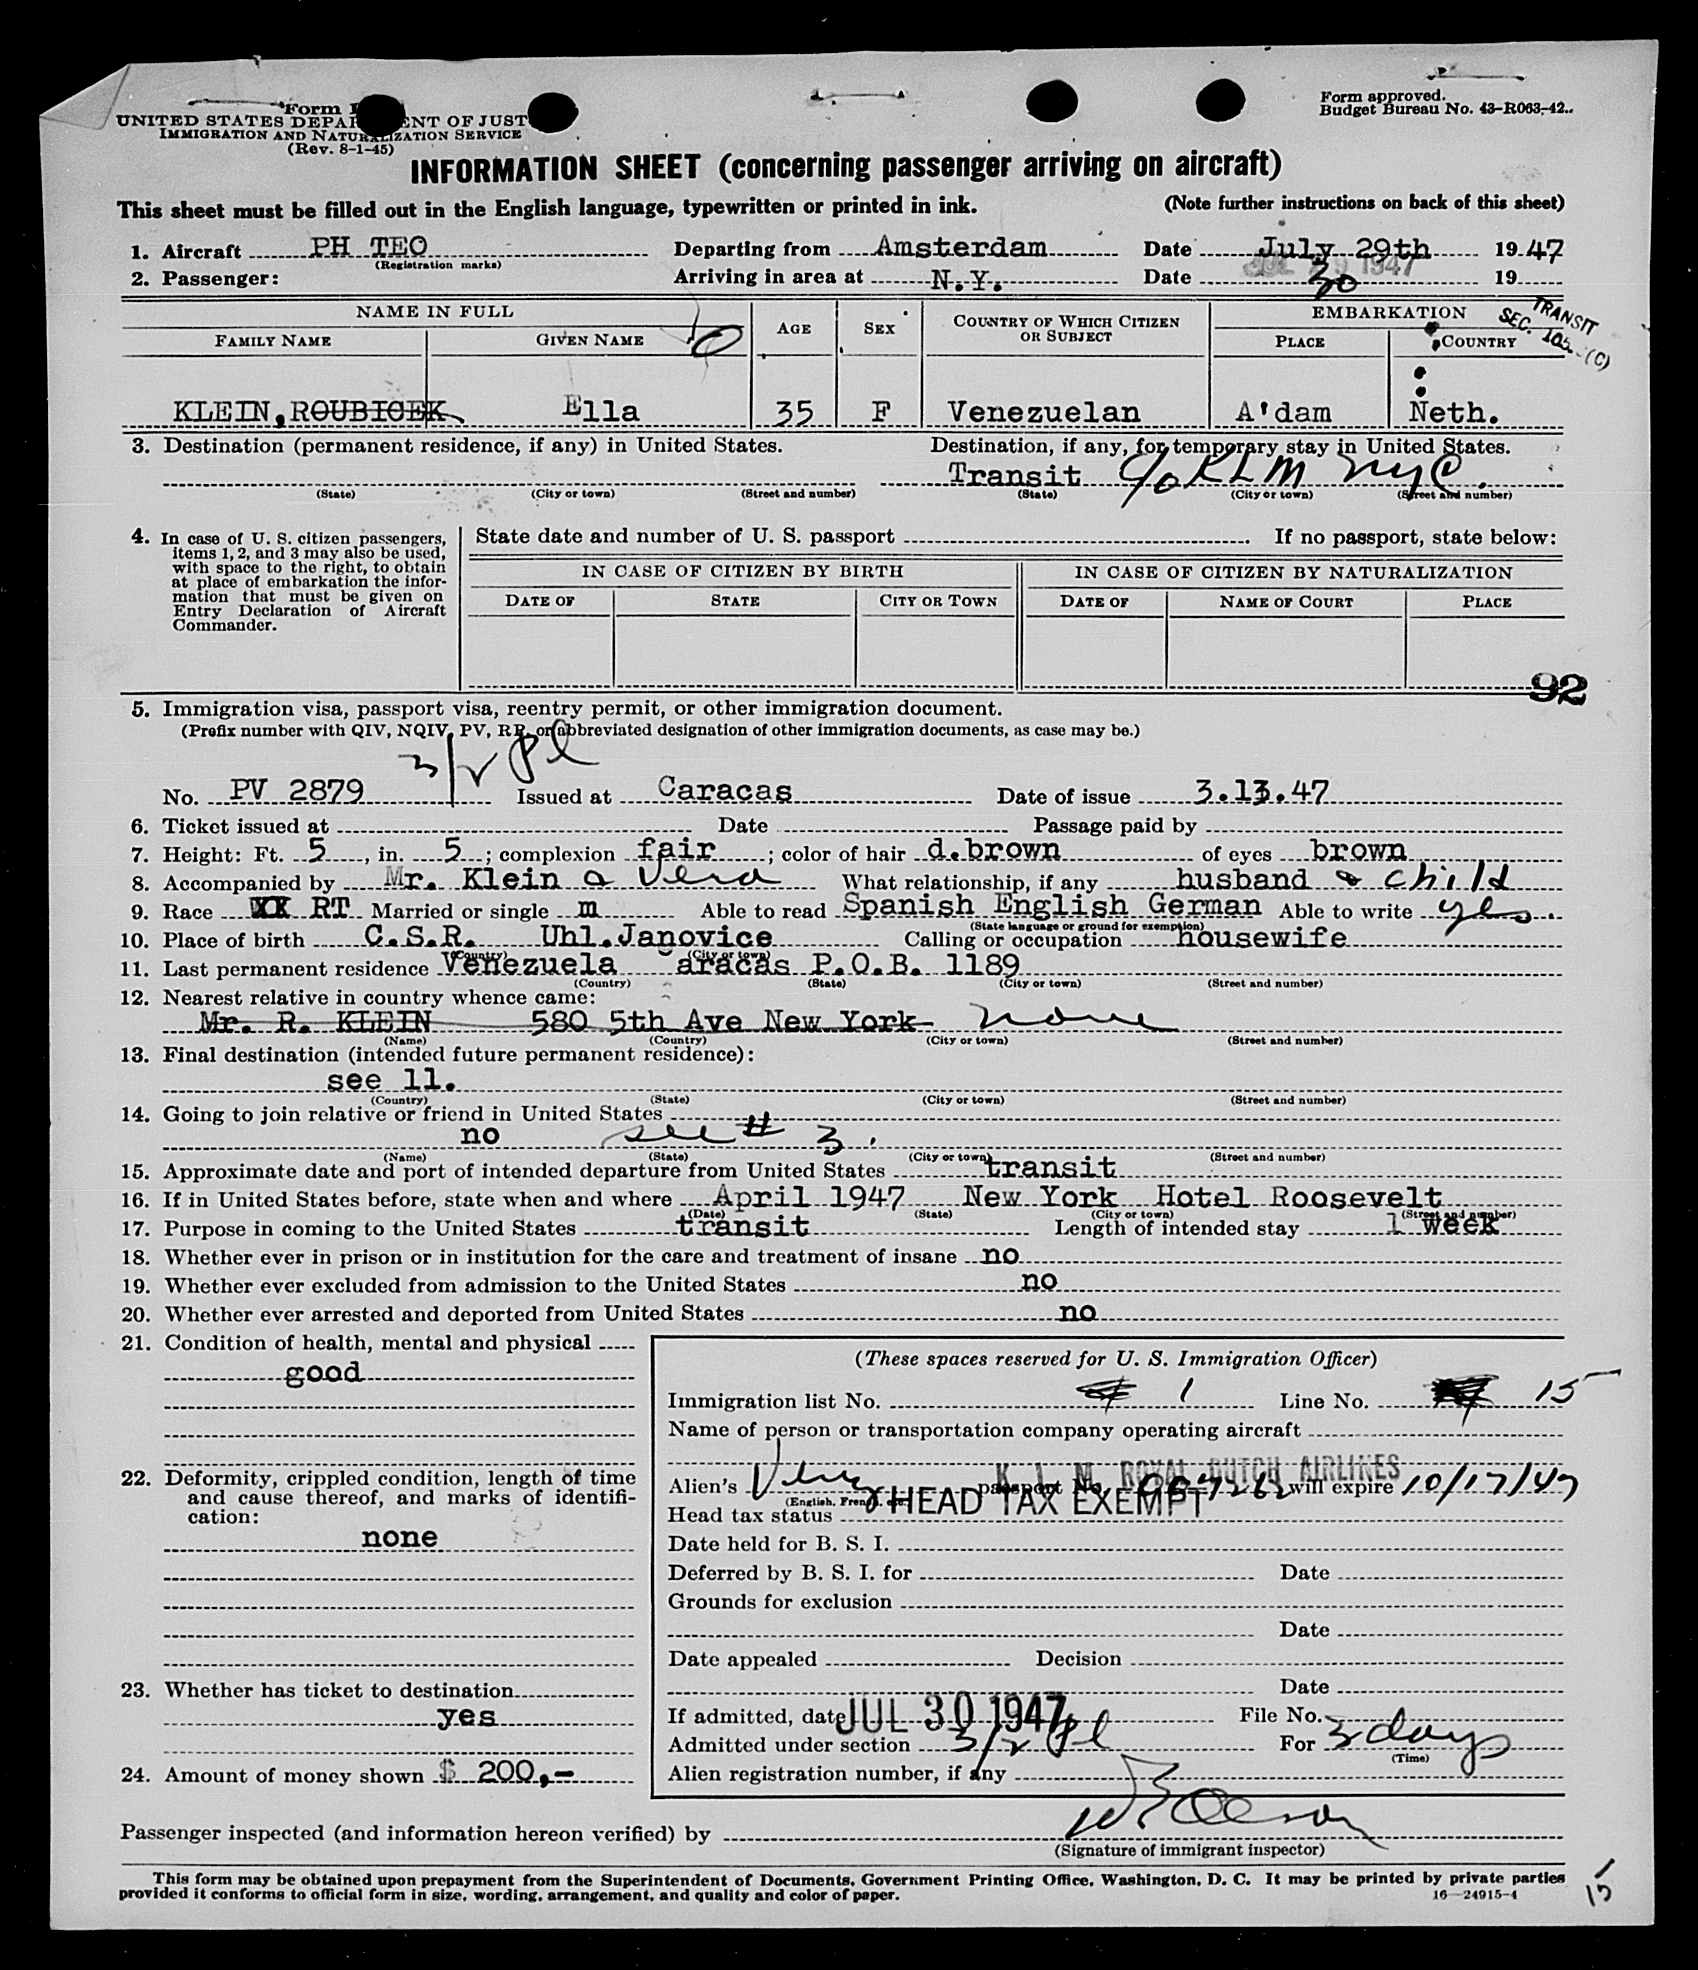 Form I
UNITED STATES DEPAR ENT OF JUST
IMMIGRATION AND NATURALIZATION SERVICE
(Rev. 8-1-45)
Form approved.
Budget Bureau No. 43-R063-42.
INFORMATION SHEET (concerning passenger arriving on aircraft)
This sheet must be filled out in the English language, typewritten or printed in ink.
(Note further instructions on back of this sheet)
1. Aircraft PH TEO Departing from Amsterdam Date July 29th 1947
(Registration marks)
2. Passenger: Arriving in area at N.Y. Date 30 19
NAME IN FULL AGE SEX COUNTRY OF WHICH CITIZEN OR SUBJECT EMBARKATION
TRANSIT SEC. 105 (C)
FAMILY NAME GIVEN NAME PLACE COUNTRY
KLEIN, ROUBICEK Ella 35 F Venezuelan A'dam Neth.
3. Destination (permanent residence, if any) in United States. Destination, if any, for temporary stay in United States.
Transit c/o KLM NYC.
(State) (City or town) (Street and number) (State) (City or town) (Street and number)
4. In case of U. S. citizen passengers, items 1, 2, and 3 may also be used, with space to the right, to obtain at place of embarkation the information that must be given on Entry Declaration of Aircraft Commander.
State date and number of U. S. passport If no passport, state below:
IN CASE OF CITIZEN BY BIRTH IN CASE OF CITIZEN BY NATURALIZATION
DATE OF STATE CITY OR TOWN DATE OF NAME OF COURT PLACE
92
5. Immigration visa, passport visa, reentry permit, or other immigration document.
(Prefix number with QIV, NQIV, PV, RP, or abbreviated designation of other immigration documents, as case may be.)
3/2 Pl
No. PV 2879 Issued at Caracas Date of issue 3.13.47
6. Ticket issued at Date Passage paid by
7. Height: Ft. 5, in. 5; complexion fair; color of hair d.brown of eyes brown
8. Accompanied by Mr. Klein & Vera What relationship, if any husband & child
9. Race XX RT Married or single m Able to read Spanish English German Able to write yes.
(State language or ground for exemption)
10. Place of birth C.S.R. Uhl.Janovice Calling or occupation housewife
(Country) (City or town)
11. Last permanent residence Venezuela aracas P.O.B. 1189
(Country) (State) (City or town) (Street and number)
12. Nearest relative in country whence came:
Mr. R. KLEIN 580 5th Ave New York none
(Name) (Country) (City or town) (Street and number)
13. Final destination (intended future permanent residence):
see 11.
(Country) (State) (City or town) (Street and number)
14. Going to join relative or friend in United States
no see # 3.
(Name) (State) (City or town) (Street and number)
15. Approximate date and port of intended departure from United States transit
16. If in United States before, state when and where April 1947 New York Hotel Roosevelt
(Date) (State) (City or town) (Street and number)
17. Purpose in coming to the United States transit Length of intended stay 1 week
18. Whether ever in prison or in institution for the care and treatment of insane no
19. Whether ever excluded from admission to the United States no
20. Whether ever arrested and deported from United States no
21. Condition of health, mental and physical
good
22. Deformity, crippled condition, length of time and cause thereof, and marks of identification:
none
23. Whether has ticket to destination
yes
24. Amount of money shown $ 200,-
(These spaces reserved for U. S. Immigration Officer)
Immigration list No. 1 Line No. 15
Name of person or transportation company operating aircraft
K. L. M. ROYAL DUTCH AIRLINES
Alien's Venz passport No. will expire 10/17/47
(English, French, etc.)
Head tax status HEAD TAX EXEMPT
Date held for B. S. I.
Deferred by B. S. I. for Date
Grounds for exclusion
Date
Date appealed Decision
Date
If admitted, date JUL 30 1947 File No.
Admitted under section 3/2 Pl For 3 days
(Time)
Alien registration number, if any
Passenger inspected (and information hereon verified) by
(Signature of immigrant inspector)
This form may be obtained upon prepayment from the Superintendent of Documents, Government Printing Office, Washington, D. C. It may be printed by private parties
provided it conforms to official form in size, wording, arrangement, and quality and color of paper.
16—24915-4
15